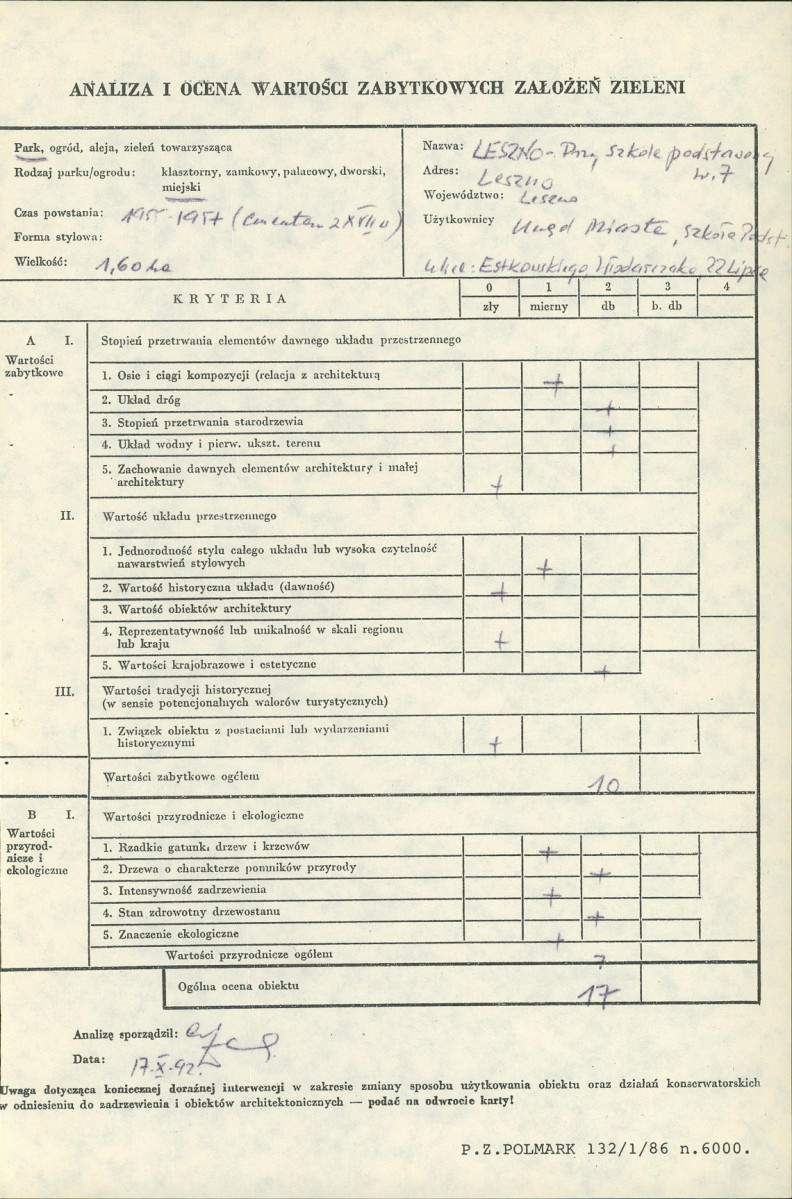 ANALIZA I OCENA WARTOŚCI ZABYTKOWYCH ZAŁOŻEŃ ZIELENI
Park, ogród, aleja, zieleń towarzysząca
Rodzaj parku/ogrodu: klasztorny, zamkowy, pałacowy, dworski,
miejski
Czas powstania: 1955-1957 (cmentarz XVII w)
Forma stylowa:
Wielkość: 1,60 ha
Nazwa: LESZNO - Przy szkole podstawowej
nr. 7
Adres: Leszno
Województwo: Leszno
Użytkownicy Urząd Miasta, Szkoła Podst.
ulice: Estkowskiego, 22 Lipca
KRYTERIA
0 1 2 3 4
zły mierny db b. db
A I. Stopień przetrwania elementów dawnego układu przestrzennego
Wartości
zabytkowe
1. Osie i ciągi kompozycji (relacja z architekturą +
2. Układ dróg +
3. Stopień przetrwania starodrzewia +
4. Układ wodny i pierw. ukszt. terenu +
5. Zachowanie dawnych elementów architektury i małej
architektury +
II. Wartość układu przestrzennego
1. Jednorodność stylu całego układu lub wysoka czytelność
nawarstwień stylowych +
2. Wartość historyczna układu (dawność) +
3. Wartość obiektów architektury
4. Reprezentatywność lub unikalność w skali regionu
lub kraju +
5. Wartości krajobrazowe i estetyczne +
III. Wartości tradycji historycznej
(w sensie potencjonalnych walorów turystycznych)
1. Związek obiektu z postaciami lub wydarzeniami
historycznymi +
Wartości zabytkowe ogółem 10
B I. Wartości przyrodnicze i ekologiczne
Wartości
przyrod-
nicze i
ekologiczne
1. Rzadkie gatunki drzew i krzewów +
2. Drzewa o charakterze pomników przyrody +
3. Intensywność zadrzewienia +
4. Stan zdrowotny drzewostanu +
5. Znaczenie ekologiczne +
Wartości przyrodnicze ogółem 7
Ogólna ocena obiektu 17
Analizę sporządził:
Data: 17.X.92.
Uwaga dotycząca koniecznej doraźnej interwencji w zakresie zmiany sposobu użytkowania obiektu oraz działań konserwatorskich
w odniesieniu do zadrzewienia i obiektów architektonicznych — podać na odwrocie karty!
P.Z.POLMARK 132/1/86 n.6000.